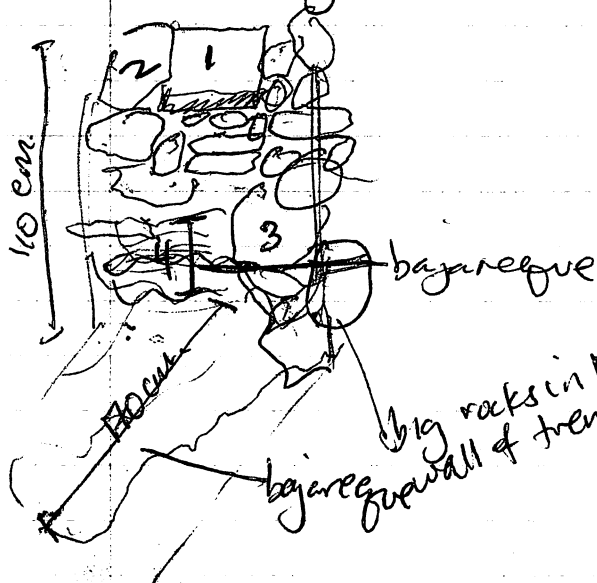 2 1
110 cm
3
4
bajareque
big rocks in
wall of tren
bajareque